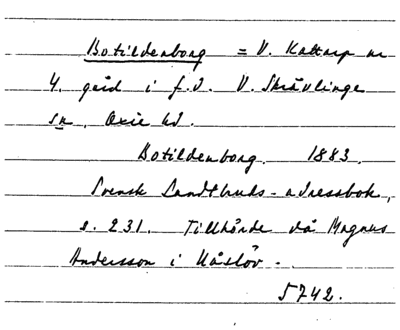 Botildenborg = V. Kattarp nr
4. gård i f.d. V. Skrävlinge
sn, Oxie hd.
Botildenborg. 1883.
Svensk Landtbruks-adressbok,
s. 231. Tillhörde då Magnus
Andersson i Håslöv.
5742.